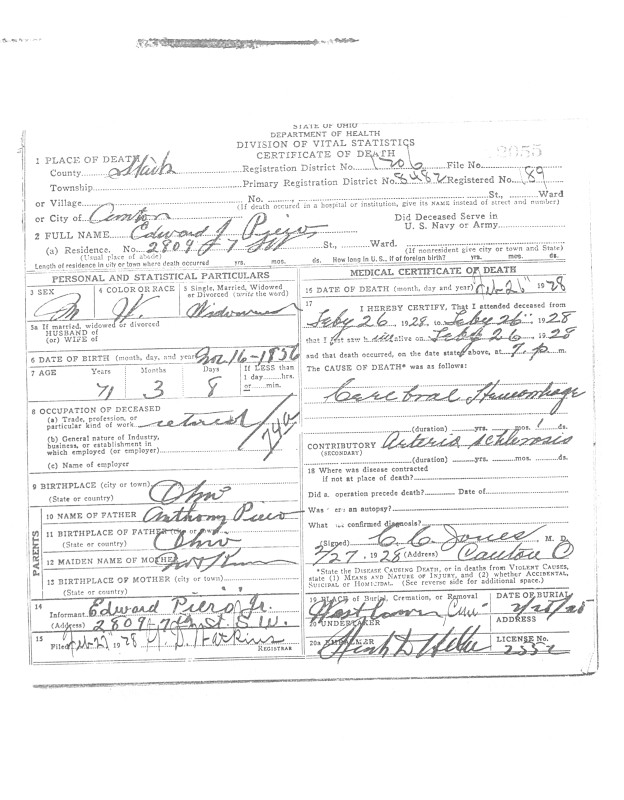 STATE OF OHIO
DEPARTMENT OF HEALTH
DIVISION OF VITAL STATISTICS
CERTIFICATE OF DEATH
1 PLACE OF DEATH
County Stark Registration District No. 1206 File No.
Township Primary Registration District No. 8482 Registered No. 189
or Village No. St., Ward
(If death occurred in a hospital or institution, give its NAME instead of street and number)
or City of Canton
Did Deceased Serve in
U. S. Navy or Army
2 FULL NAME Edward J Piero
(a) Residence. No. 2809 - 7 SW St., Ward.
(Usual place of abode) (If nonresident give city or town and State)
Length of residence in city or town where death occurred yrs. mos. ds. How long in U. S., if of foreign birth? yrs. mos. ds.
PERSONAL AND STATISTICAL PARTICULARS
3 SEX 4 COLOR OR RACE 5 Single, Married, Widowed
or Divorced (write the word)
M W. Widowed
5a If married, widowed or divorced
HUSBAND of
(or) WIFE of
6 DATE OF BIRTH (month, day, and year) Nov 16-1856
7 AGE Years Months Days If LESS than
1 day hrs.
or min.
71 3 8
8 OCCUPATION OF DECEASED
(a) Trade, profession, or
particular kind of work retired
(b) General nature of Industry,
business, or establishment in
which employed (or employer)
(c) Name of employer
74a
9 BIRTHPLACE (city or town)
(State or country) Ohio
PARENTS
10 NAME OF FATHER Anthony Piero
11 BIRTHPLACE OF FATHER (city or town)
(State or country) Ohio
12 MAIDEN NAME OF MOTHER
13 BIRTHPLACE OF MOTHER (city or town)
(State or country) "
14
Informant Edward Piero Jr.
(Address) 2809-7th St. S.W.
15
Filed Feb-27 1928 Harkins
REGISTRAR
MEDICAL CERTIFICATE OF DEATH
15 DATE OF DEATH (month, day and year) Feb-26 1928
17
I HEREBY CERTIFY, That I attended deceased from
Feby 26, 1928 to Feby 26, 1928
that I last saw h alive on Feby 26, 1928
and that death occurred, on the date stated above, at 7. p m.
The CAUSE OF DEATH* was as follows:
Cerebral Hemorhage
(duration) yrs. mos. 1 ds.
CONTRIBUTORY Arterio Schlerosis
(SECONDARY)
(duration) yrs. mos. ds.
18 Where was disease contracted
if not at place of death?
Did a operation precede death? Date of
Was er: an autopsy?
What confirmed diagnosis?
(Signed) C. C. Jones, M. D.
2/27, 1928 (Address) Canton O
*State the DISEASE CAUSING DEATH, or in deaths from VIOLENT CAUSES,
state (1) MEANS AND NATURE OF INJURY, and (2) whether ACCIDENTAL,
SUICIDAL or HOMICIDAL. (See reverse side for additional space.)
19 PLACE of Burial, Cremation, or Removal DATE OF BURIAL
West Lawn 2/28/28
20 UNDERTAKER ADDRESS
20a EMBALMER LICENSE No.